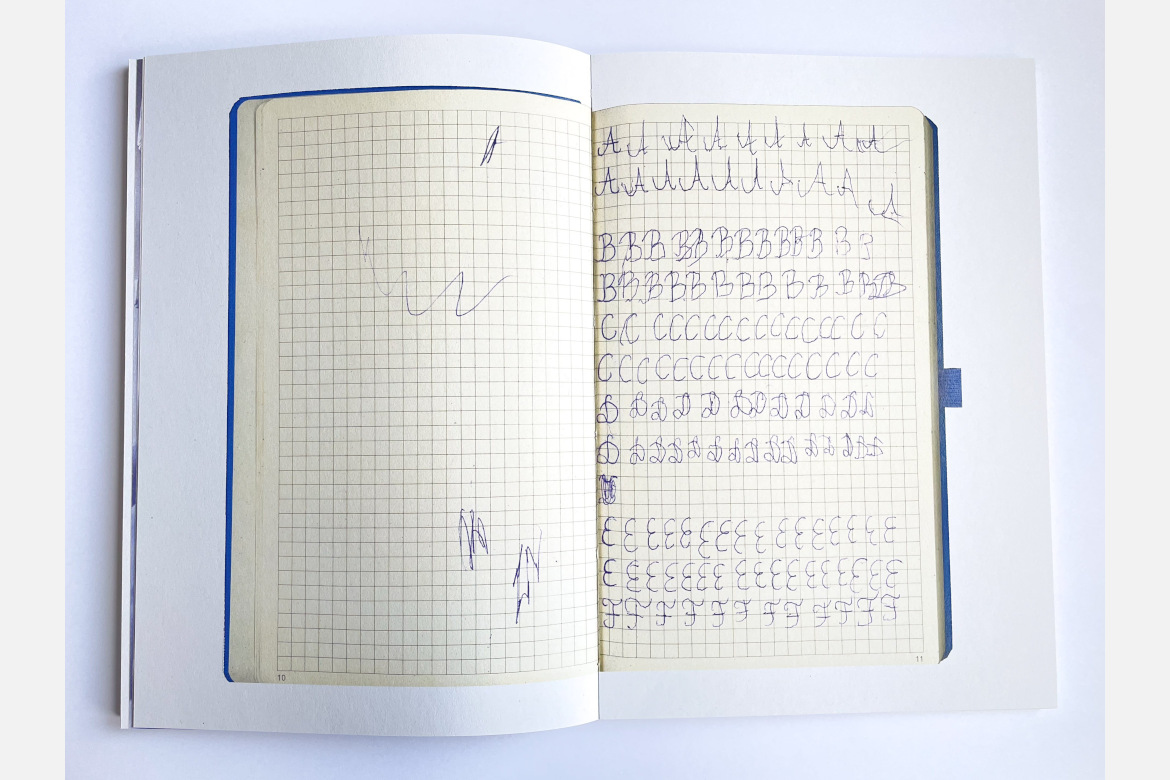 10
A A A A A A A A A A
A A A A A A A A A
A
B B B B B B B B B B B B B
B B B B B B B B B B B B B B
C C C C C C C C C C C C C C C C
C C C C C C C C C C C C C C C C
D D D D D D D D D D D D
D D D D D D D D D D D D D D D
E E E E E E E E E E E E E E E E
E E E E E E E E E E E E E E E E
F F F F F F F F F F F F
11